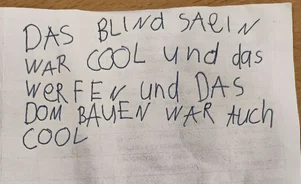 DAS BLINd SAEIN
WAR COOL und das
WERFEN und DAS
DOM BAUEN WAR AUCH
COOL